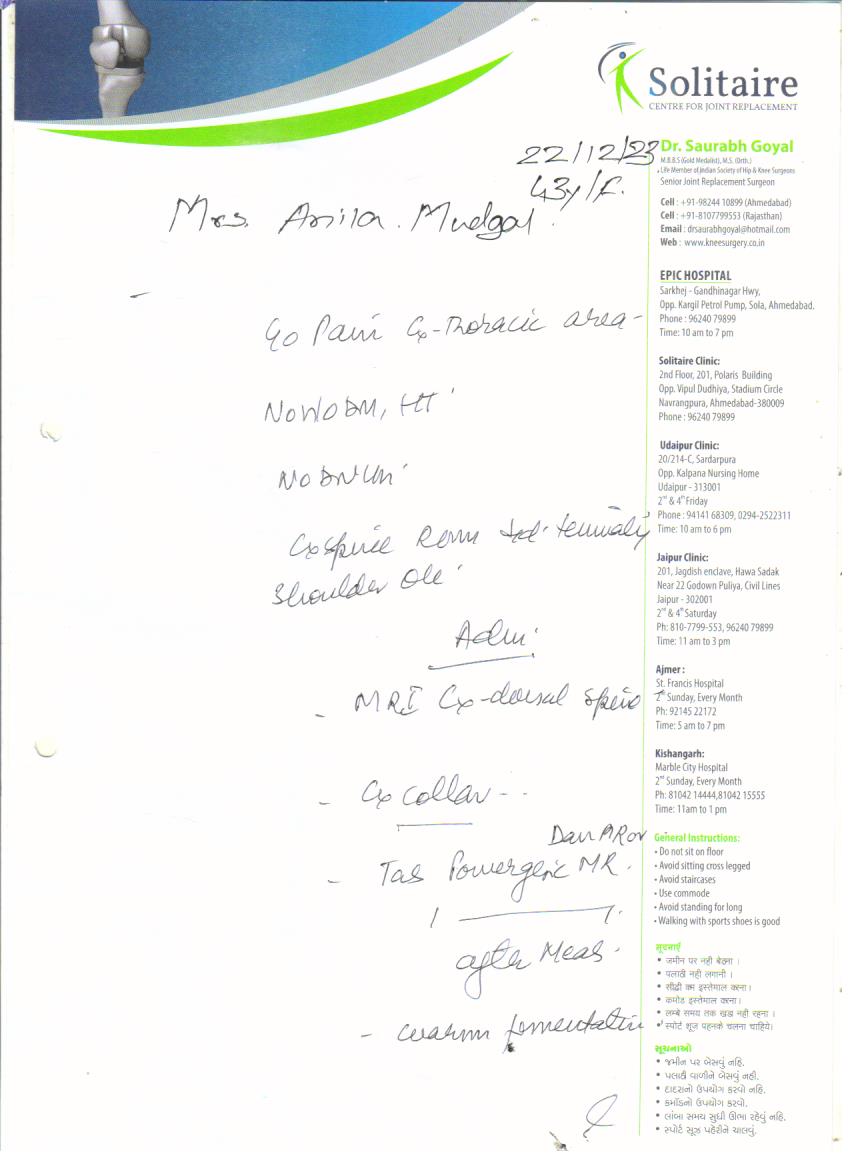 Solitaire
CENTRE FOR JOINT REPLACEMENT
Dr. Saurabh Goyal
M.B.B.S (Gold Medalist), M.S. (Orth.)
Life Member of Indian Society of Hip & Knee Surgeons
Senior Joint Replacement Surgeon
Cell : +91-98244 10899 (Ahmedabad)
Cell : +91-8107799553 (Rajasthan)
Email : drsaurabhgoyal@hotmail.com
Web : www.kneesurgery.co.in
22/12/23
43y/F.
Mrs. Anila. Mudgal
C/o Pain Cx-Thoracic area-
No H/O DM, HT
Cx spine ROM
Shoulder
Adv:
- MRI Cx-dorsal spine
- Cx collar --
- Tab Powergesic MR.
1 — 1.
after Meals.
- warm fomentation
EPIC HOSPITAL
Sarkhej - Gandhinagar Hwy,
Opp. Kargil Petrol Pump, Sola, Ahmedabad.
Phone : 96240 79899
Time: 10 am to 7 pm
Solitaire Clinic:
2nd Floor, 201, Polaris Building
Opp. Vipul Dudhiya, Stadium Circle
Navrangpura, Ahmedabad-380009
Phone : 96240 79899
Udaipur Clinic:
20/214-C, Sardarpura
Opp. Kalpana Nursing Home
Udaipur - 313001
2nd & 4th Friday
Phone : 94141 68309, 0294-2522311
Time: 10 am to 6 pm
Jaipur Clinic:
201, Jagdish enclave, Hawa Sadak
Near 22 Godown Puliya, Civil Lines
Jaipur - 302001
2nd & 4th Saturday
Ph: 810-7799-553, 96240 79899
Time: 11 am to 3 pm
Ajmer :
St. Francis Hospital
Sunday, Every Month
Ph: 92145 22172
Time: 5 am to 7 pm
Kishangarh:
Marble City Hospital
2nd Sunday, Every Month
Ph: 81042 14444,81042 15555
Time: 11am to 1 pm
General Instructions:
• Do not sit on floor
• Avoid sitting cross legged
• Avoid staircases
• Use commode
• Avoid standing for long
• Walking with sports shoes is good
सूचनाएँ
• जमीन पर नही बेठना ।
• पलाठी नही लगानी ।
• सीढ़ी कम इस्तेमाल करना।
• कमोड इस्तेमाल करना।
• लम्बे समय तक खडा नही रहना ।
• स्पोर्ट शूज पहनके चलना चाहिये।
સૂચનાઓ
• જમીન પર બેસવું નહિ.
• પલાઠી વાળીને બેસવું નહી.
• દાદરાનો ઉપયોગ કરવો નહિ.
• કમોડનો ઉપયોગ કરવો.
• લાંબા સમય સુધી ઊભા રહેવું નહિ.
• સ્પોર્ટ સૂઝ પહેરીને ચાલવું.